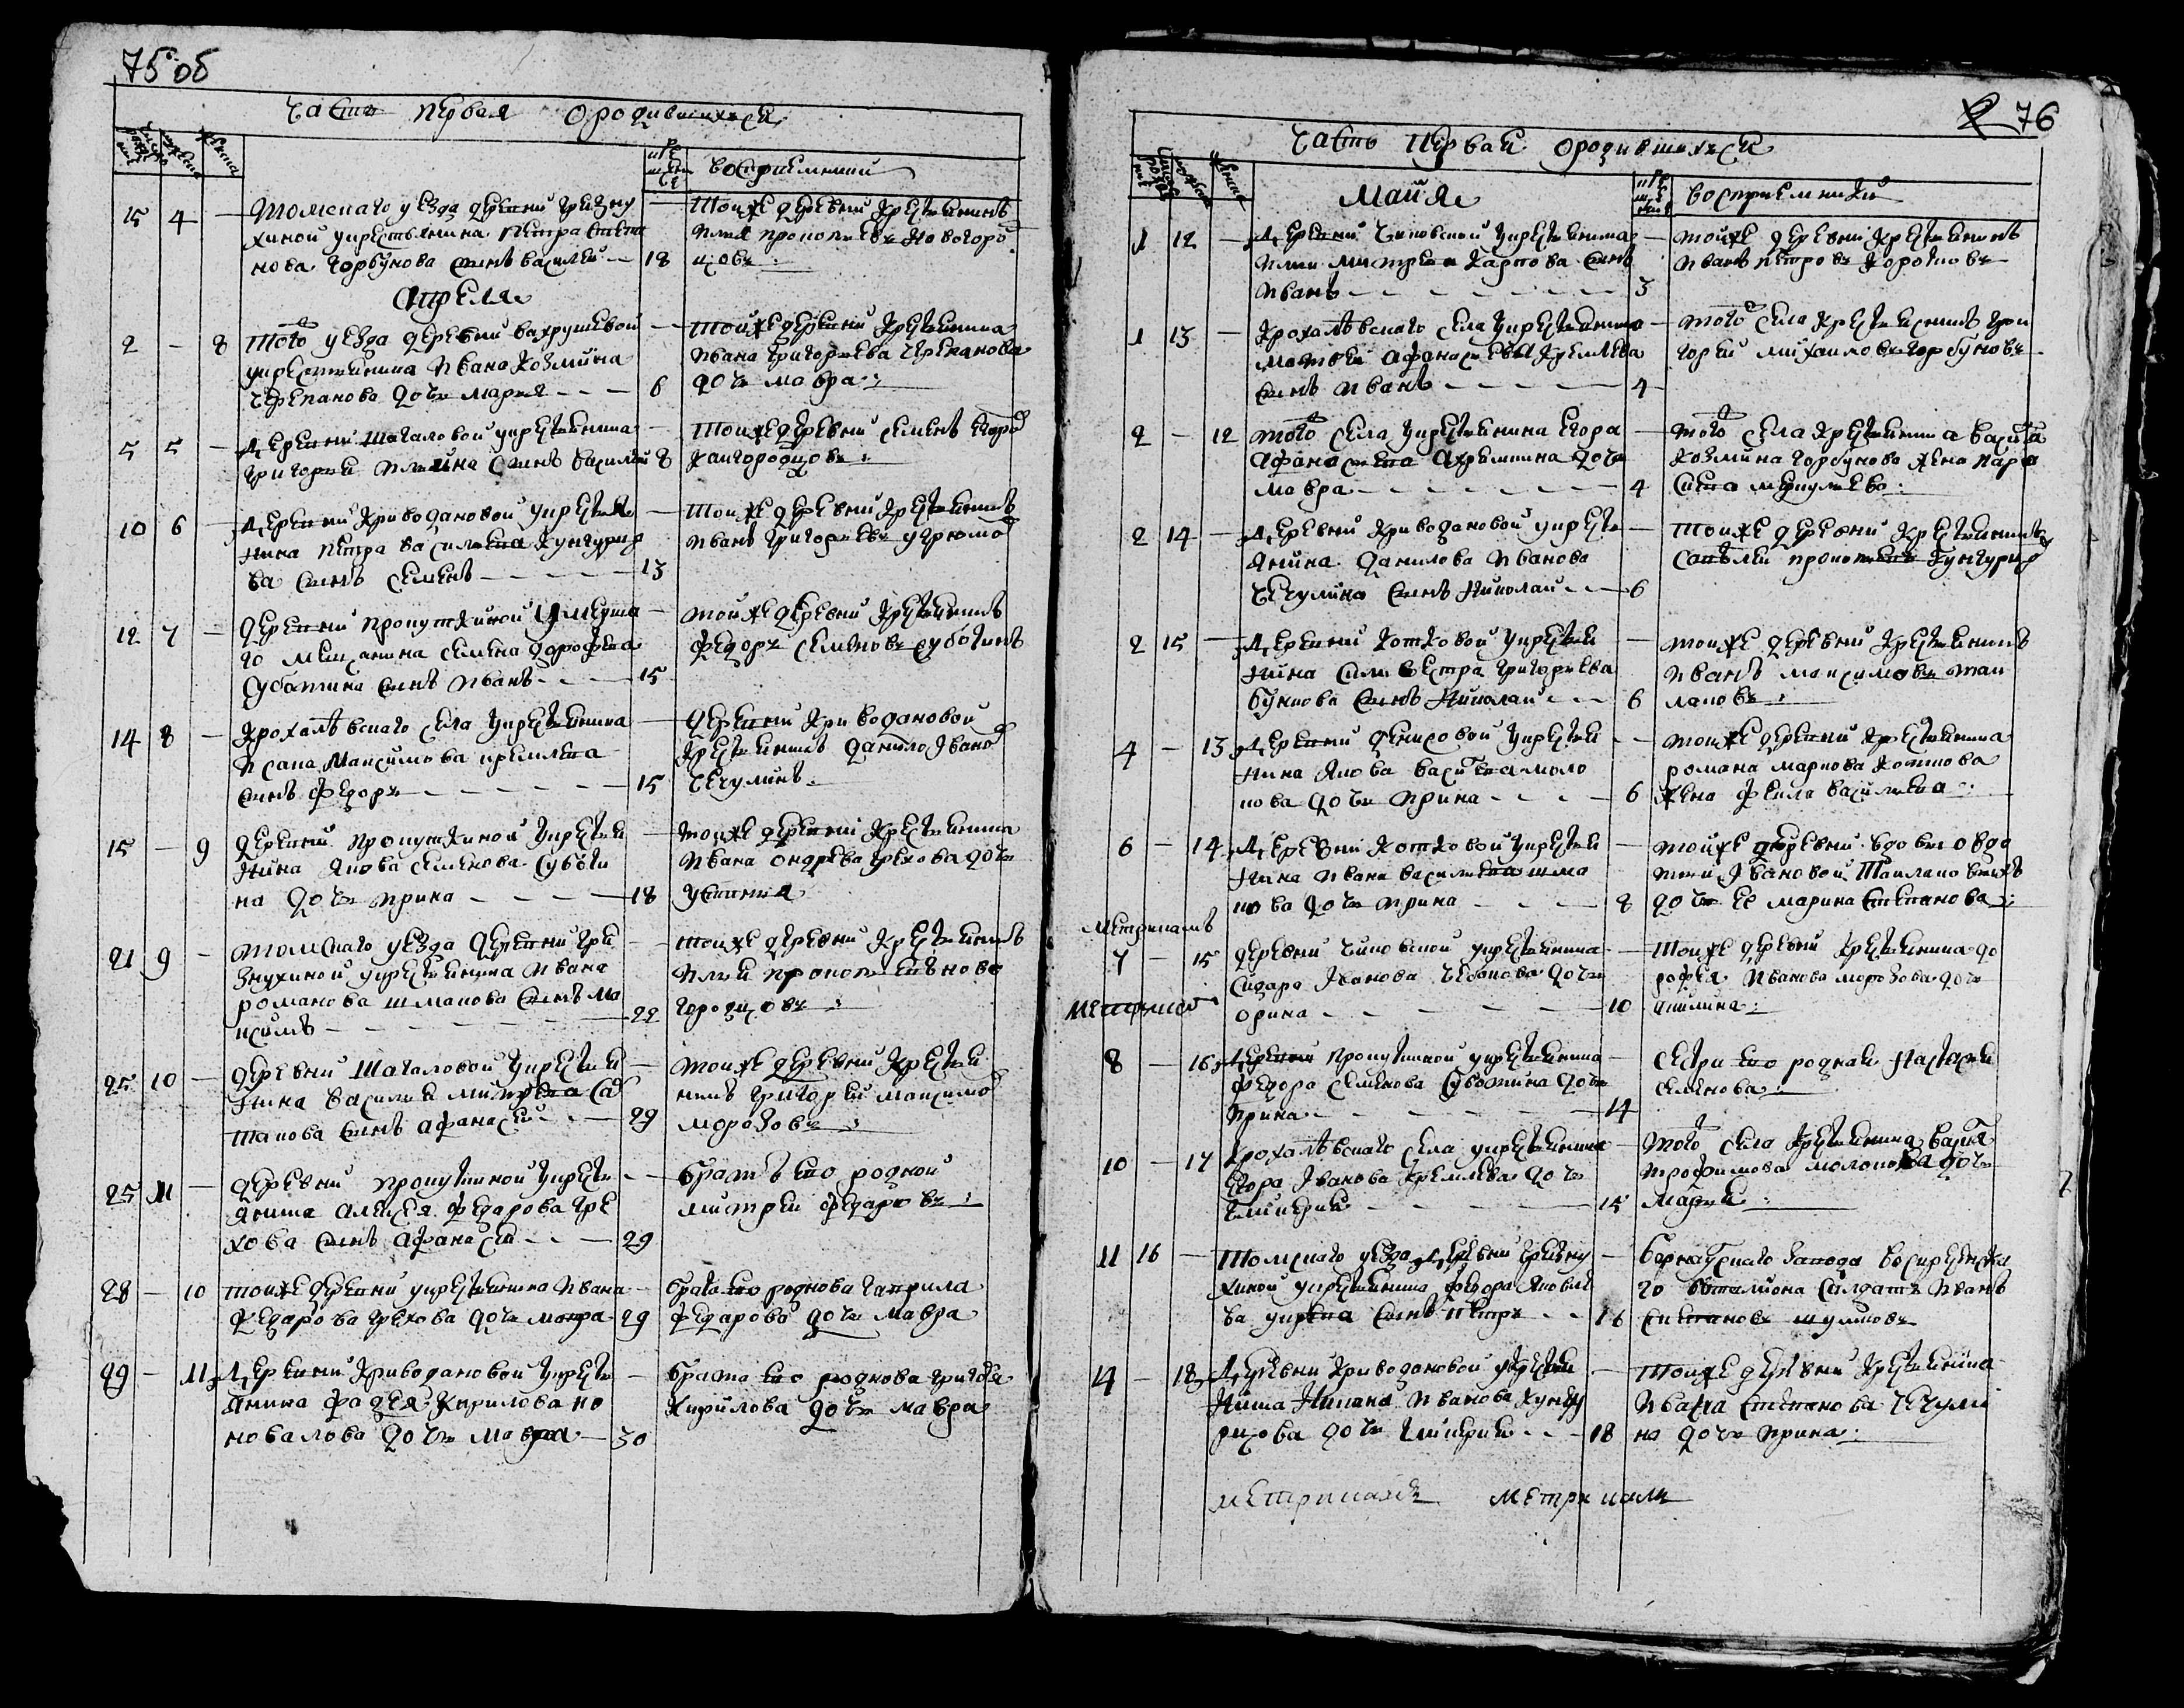 75 об
Часть первая о родившихся
число рождения
мужеска
женска
кре
ще
ния
восприемники
15 4 — Томскаго уезда деревни Грязну
хиной у крестьянина Петра Степа
нова Горбунова сынъ Василей — 18
— тойже деревни крестьянинъ
Илья Прокопьевъ Новогоро
цовъ
Апреля
2 — 8 того уезда деревни Вахрушевой
у крестьянина Ивана Козмина
Черепанова дочь Марья — 6
— тойже деревни крестьянина
Ивана Григорьева Черепанова
дочь Мавра
5 5 — Деревни Шагаловой у крестьянина
Григорья Ильина сынъ Василий 8
— тойже деревни Семенъ Егоро
Кайгородцовъ
10 6 — Деревни Криводановой у крестья
нина Петра Васильева Кунгурц
ва сынъ Семенъ — 13
— тойже деревни крестьянинъ
Иванъ Григорьевъ Угрюмо
12 7 — деревни Прокуткиной
го мещанина Семена Дорофеева
Суботина сынъ Иванъ — 15
— тойже деревни крестьянинъ
Федоръ Семеновъ Суботинъ
14 8 — Крохалевскаго села у крестьянина
Исака Максимова Кремлева
сынъ Федоръ — 15
— деревни Криводановой
крестьянинъ Данило Ивано
Чечулинъ
15 — 9 деревни Прокуткиной у крестья
нина Якова Семенова Суботи
на дочь Ирина — 18
— тойже деревни крестьянина
Ивана Ондреева Грехова дочь
Устинья
21 9 — Томскаго уезда деревни Гря
знухиной у крестьянина Ивана
Романова Шмакова сынъ Ма
ксимъ — 22
— тойже деревни крестьянинъ
Илья Прокопьевъ Ново
городцовъ
25 10 — деревни Шагаловой у крестья
нина Василья Митрева Са
шакова сынъ Афанасий — 29
— тойже деревни крестья
нинъ Григорьи Максимо
Морозовъ
25 11 — деревни Прокуткиной у кресть
янина Алексея Федорова Гре
хова сынъ Афанасей — 29
— братъ ево родной
Митрей Федоровъ
28 — 10 тойже деревни у крестьянина Ивана
Федорова Грехова дочь Мавра 29
— брата ево роднова Гаврила
Федорова дочь Мавра
29 — 11 Деревни Криводановой у кресть
янина Фадея Кирилова Ко
новалова дочь Мавра — 30
— брата ево роднова Григорья
Кирилова дочь Мавра
76
Часть первая о родившихся
число рождения
мужеска
женска
кре
ще
ния
восприемники
Майя
1 12 — Деревни Чиковской у крестьянина
Ильи Митрева Карпова сынъ
Иванъ — 3
— тойже деревни крестьянинъ
Иванъ Петровъ Коротковъ
1 13 — Крохалевскаго села у крестьянина
Матвея Афанасьева Кремлева
сынъ Иванъ — 4
— того села крестьянинъ Гри
горей Михаиловъ Горбуновъ
2 — 12 того села у крестьянина Егора
Афанасьева Ахремкина дочь
Мавра — 4
— того села крестьянина Василья
Козмина Горбунова жена Пара
скева Меркульева
2 14 — Деревни Криводановой у кресть
янина Данилова Иванова
Чечулина сынъ Николай — 6
— тойже деревни крестьянинъ
Савелей Прокопьевъ Кунгурц
2 15 — Деревни Котковой у крестья
нина Силивестра Григорьева
Букнова сынъ Николай — 6
— тойже деревни крестьянинъ
Иванъ Максимовъ Таи
лаковъ
4 — 13 Деревни Денисовой у крестья
нина Якова Васильева Моло
кова дочь Ирина — 6
— тойже деревни крестьянина
Романа Маркова Коткова
жена Фекла Васильева
6 — 14 Деревни Котковой у крестья
нина Ивана Васильева Шма
кова дочь Ирина — 8
— тойже деревни вдовы Овдо
тьи Ивановой Таилаковыхъ
дочь ее Марина Степанова
метрикамъ
7 — 15 деревни Чиковской у крестьянина
Сидора Иванова Чебакова дочь
Орина — 10
— тойже деревни крестьянина До
рофея Иванова Морозова дочь
Акилина
8 — 16 Деревни Прокуткиной у крестьянина
Федора Семенова Суботина дочь
Ирина — 14
— сестра ево родная Настасья
Семенова
10 — 17 Крохалевскаго села у крестьянина
Егора Иванова Кремлева дочь
Гликерия — 15
— того села крестьянина Василья
Трофимова Молокова дочь
Марья
11 16 — Томскаго уезда деревни Грязну
хиной у крестьянина Федора Яковле
ва сынъ Петръ — 16
— Барнаулскаго завода Воскресенска
го баталиона салдатъ Иванъ
Степановъ Шумковъ
14 — 18 Деревни Криводановой у крестья
нина Никана Иванова Кунгу
рцова дочь Гликерия — 18
— тойже деревни крестьянина
Ивана Степанова Чечули
на дочь Ирина
метрикахъ метрикамъ